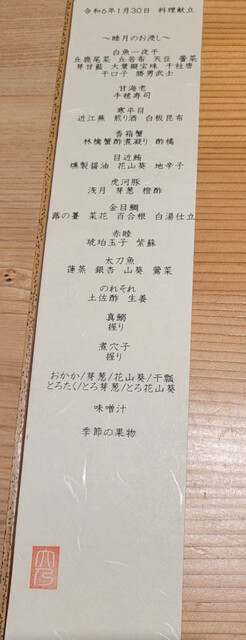 令和6年1月30日 料理献立
～睦月のお浸し～
白魚一夜干
丘鹿尾菜 丘若布 天豆 蕾菜
芽甘藍 大葉擬宝珠 千社唐
干口子 勝男武士
甘海老
手毬寿司
寒平目
近江蕪 煎り酒 白板昆布
香箱蟹
林檎蟹酢煮凝り 酢橘
目近鮪
燻製醤油 花山葵 地辛子
虎河豚
浅月 芽葱 橙酢
金目鯛
蕗の薹 菜花 百合根 白湯仕立
赤睦
琥珀玉子 紫蘇
太刀魚
蓮蒸 銀杏 山葵 鶯菜
のれそれ
土佐酢 生姜
真鯛
握り
煮穴子
握り
おかか/芽葱/花山葵/干瓢
とろたく/とろ芽葱/とろ花山葵
味噌汁
季節の果物